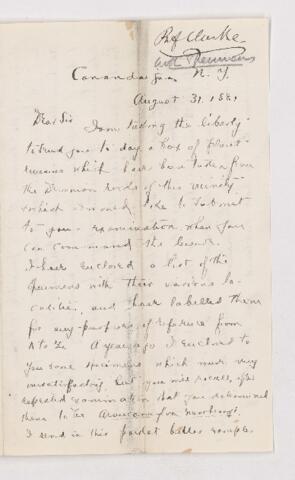 Prof Clarke.
Canandaigua N. Y.
August 31. 188
Dear Sir
I am taking the liberty
to send you to day a box of plant
remains which have been taken from
the Devonian rocks of this vicinity
which I would like to submit
to your examination when you
can command the leisure.
I have enclosed a list of the
specimens with their various lo-
calities, and have labelled them
for any purpose of reference from
A to Z. A year ago I enclosed to
you some specimens which were very
unsatisfactory. But you will recall, after
repeated examination that you determined
them to be
I send in this packet better examples